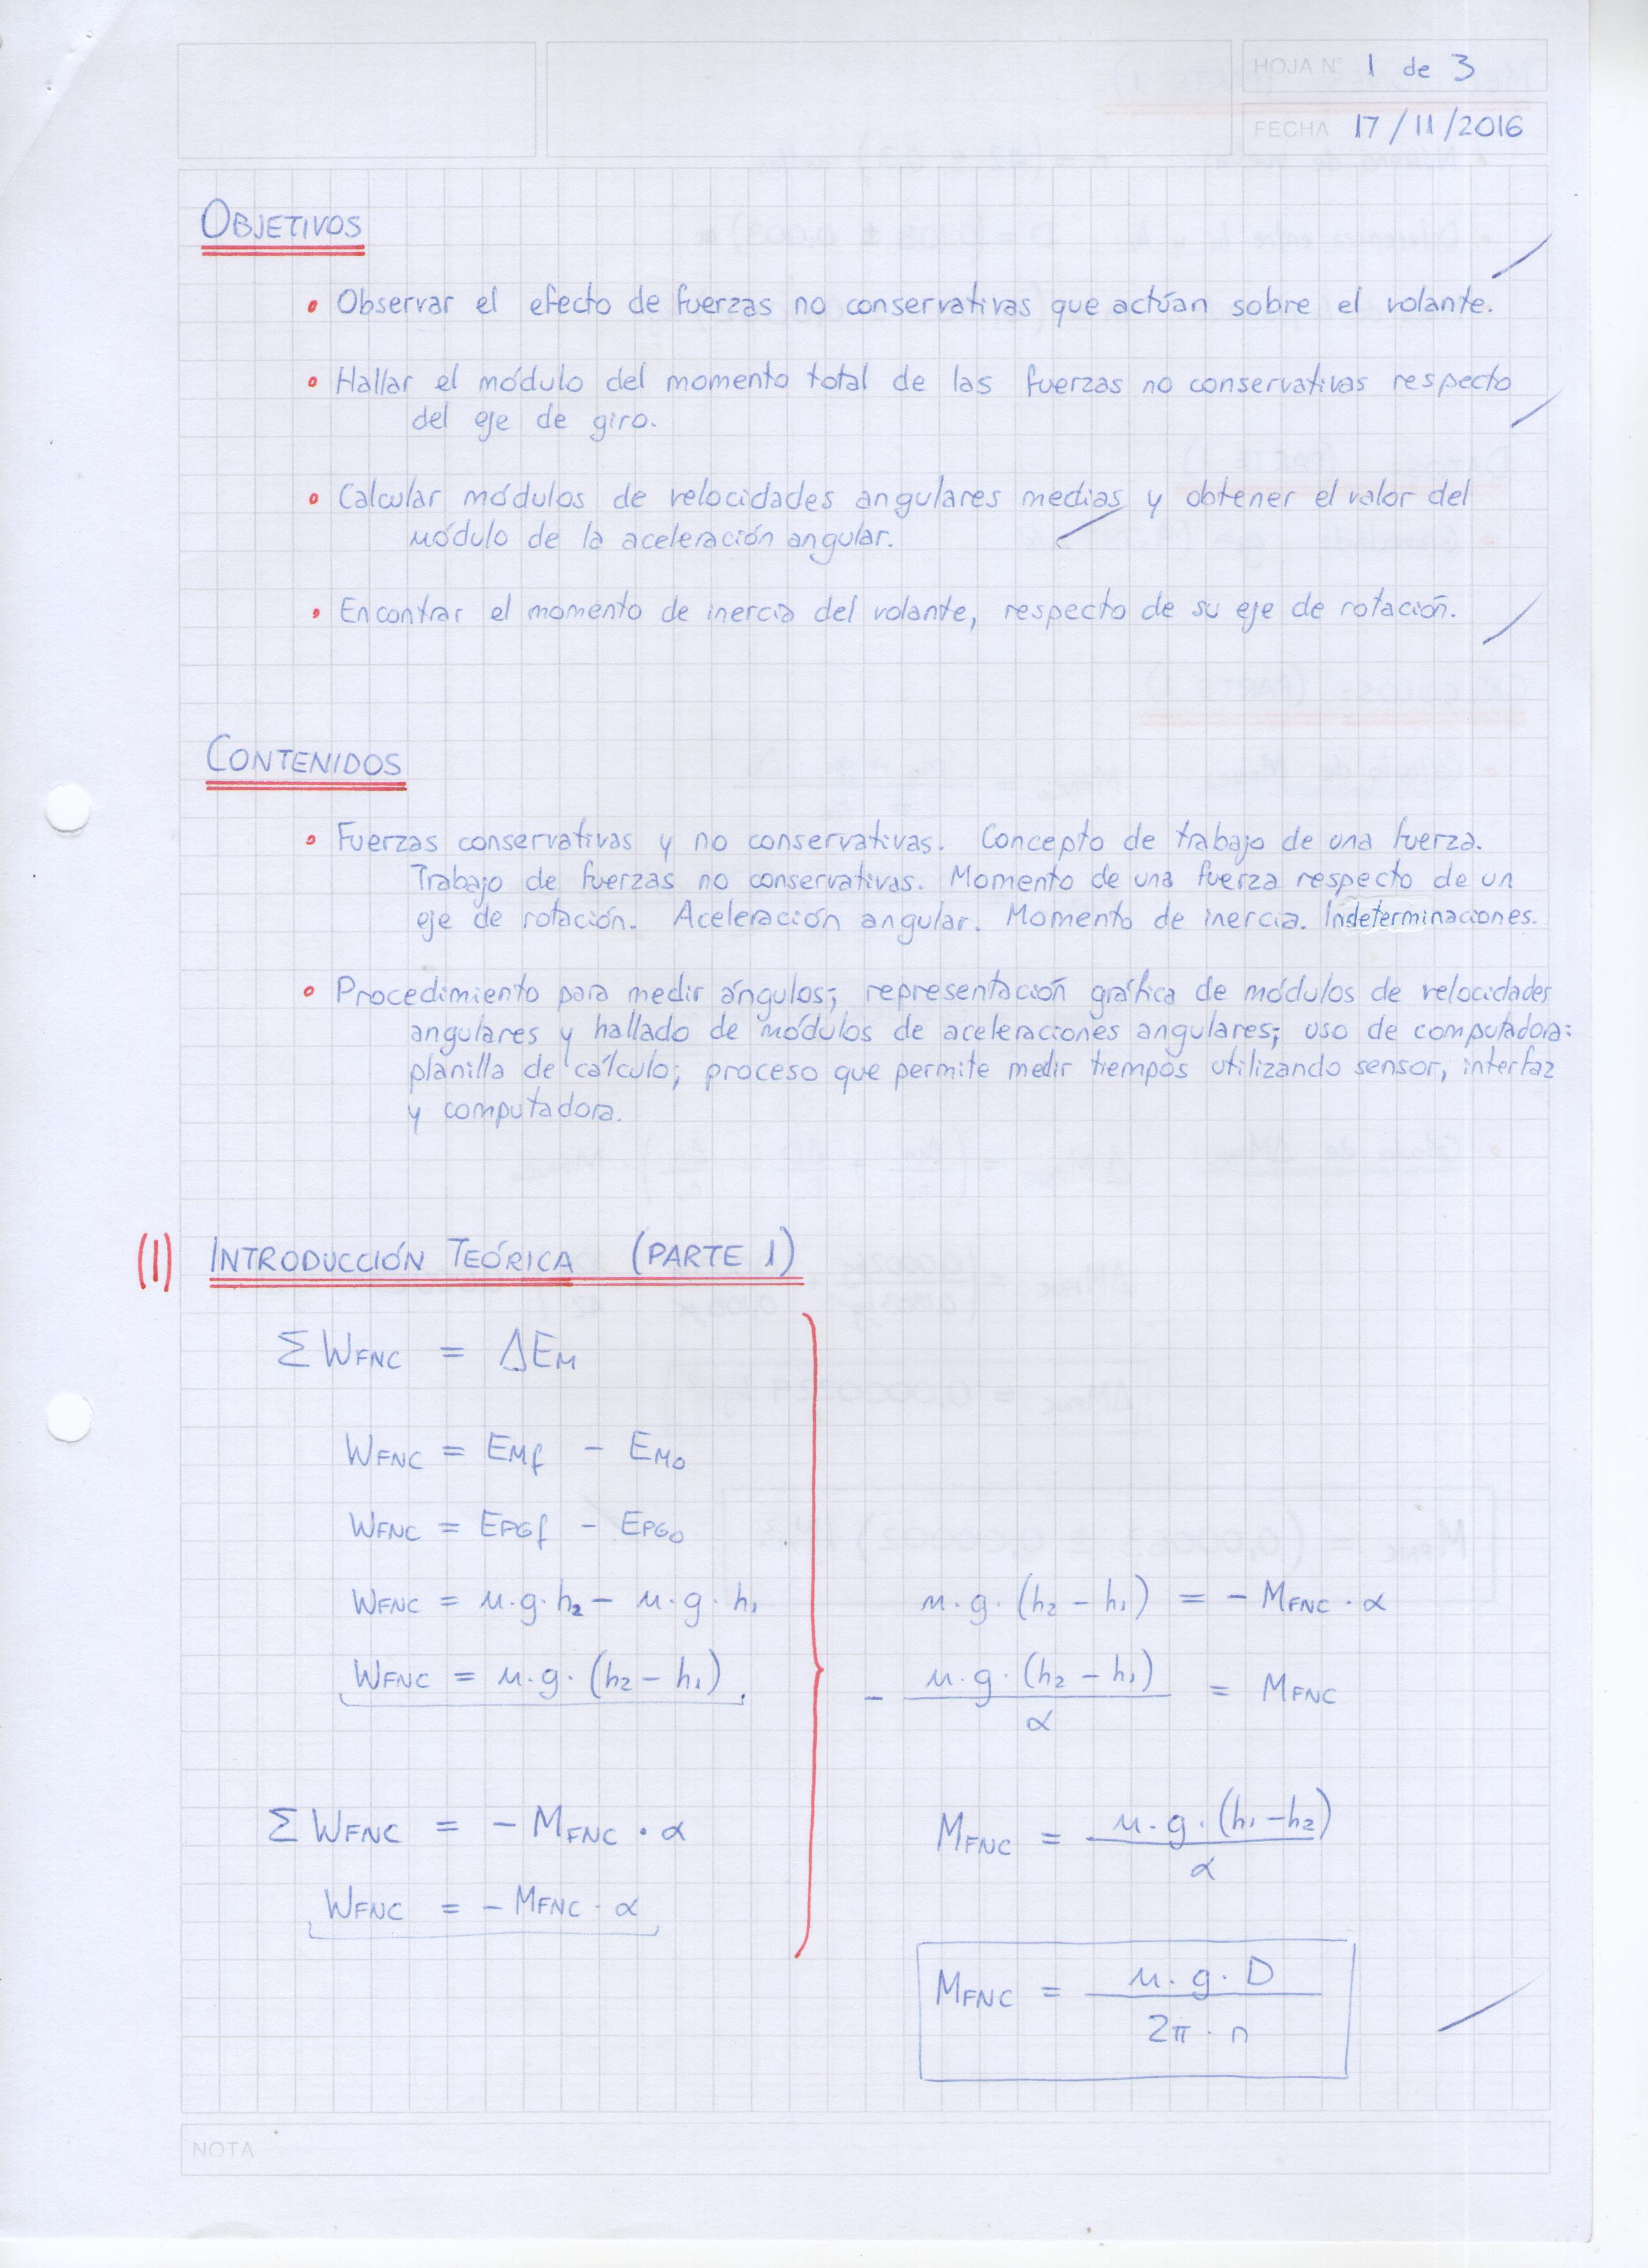 HOJA N° 1 de 3
FECHA 17/11/2016
OBJETIVOS
• Observar el efecto de fuerzas no conservativas que actúan sobre el volante.
• Hallar el módulo del momento total de las fuerzas no conservativas respecto
del eje de giro.
• Calcular módulos de velocidades angulares medias y obtener el valor del
módulo de la aceleración angular.
• Encontrar el momento de inercia del volante, respecto de su eje de rotación.
CONTENIDOS
• Fuerzas conservativas y no conservativas. Concepto de trabajo de una fuerza.
Trabajo de fuerzas no conservativas. Momento de una fuerza respecto de un
eje de rotación. Aceleración angular. Momento de inercia. Indeterminaciones.
• Procedimiento para medir ángulos; representación gráfica de módulos de velocidades
angulares y hallado de módulos de aceleraciones angulares; uso de computadora:
planilla de cálculo; proceso que permite medir tiempos utilizando sensor, interfaz
y computadora.
(I) INTRODUCCIÓN TEÓRICA (PARTE 1)
Σ WFNC = ΔEM
WFNC = EMf - EM0
WFNC = EPGf - EPG0
WFNC = m.g.h2 - m.g.h1
WFNC = m.g.(h2 - h1)
Σ WFNC = - MFNC . α
WFNC = - MFNC . α
m.g.(h2 - h1) = - MFNC . α
- m.g.(h2 - h1) / α = MFNC
MFNC = m.g.(h1 - h2) / α
MFNC = m.g.D / 2π.n
NOTA